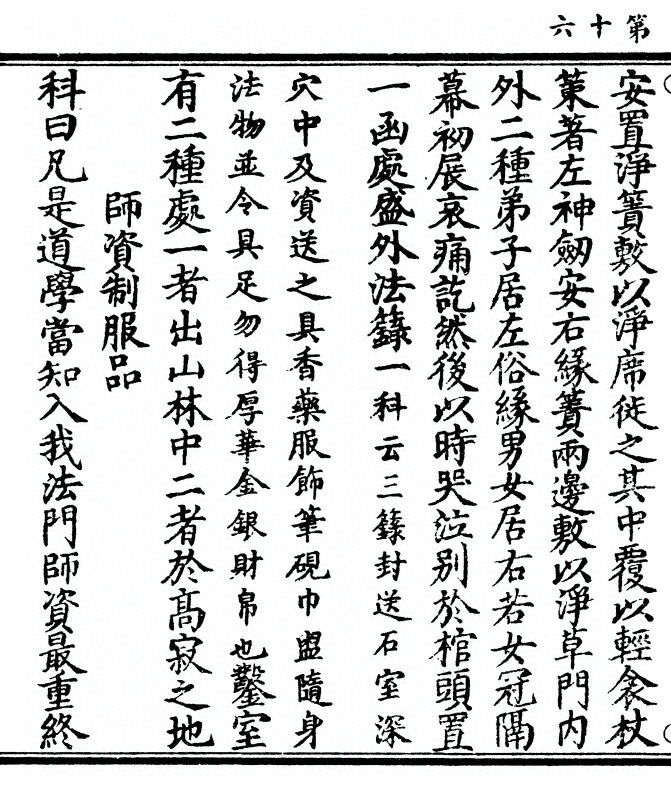 第十六
安置淨簀敷以淨席徙之其中覆以輕衾杖
䇿著左神劒安右緣簀兩邊敷以淨草門内
外二種弟子居左俗緣男女居右若女冠隔
幕初展哀痛訖然後以時哭泣别於棺頭置
一函處盛外法籙一科云三籙封送石室深
穴中及資送之具香藥服飾筆硯巾盥隨身
法物並令具足勿得厚華金銀財帛也鑿室
有二種處一者出山林中二者於髙寂之地
師資制服品
科曰凡是道學當知入我法門師資最重終